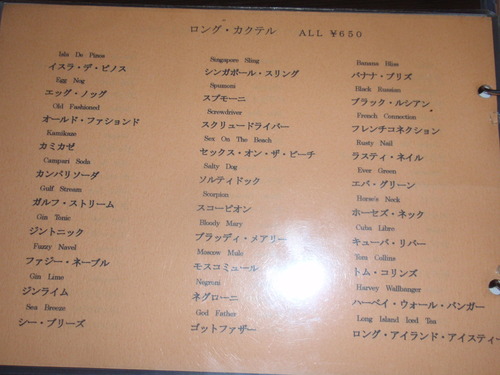 ロング・カクテル ALL ¥650
Isla De Pinos
イスラ・デ・ピノス
Egg Nog
エッグ・ノッグ
Old Fashioned
オールド・ファションド
Kamikaze
カミカゼ
Campari Soda
カンパリソーダ
Gulf Stream
ガルフ・ストリーム
Gin Tonic
ジントニック
Fuzzy Navel
ファジー・ネーブル
Gin Lime
ジンライム
Sea Breeze
シー・ブリーズ
Singapore Sling
シンガポール・スリング
Spumoni
スプモーニ
Screwdriver
スクリュードライバー
Sex On The Beech
セックス・オン・ザ・ビーチ
Salty Dog
ソルティドック
Scorpion
スコーピオン
Bloody Mary
ブラッディ・メアリー
Moscow Mule
モスコミュール
Negroni
ネグローニ
God Father
ゴットファザー
Banana Bliss
バナナ・ブリズ
Black Russian
ブラック・ルシアン
French Connection
フレンチコネクション
Rusty Nail
ラスティ・ネイル
Ever Green
エバ・グリーン
Horse's Neck
ホーセズ・ネック
Cuba Libre
キューバ・リバー
Tom Collins
トム・コリンズ
Harvey Wallbunger
ハーベイ・ウォール・バンガー
Long Island Iced Tea
ロング・アイランド・アイスティー